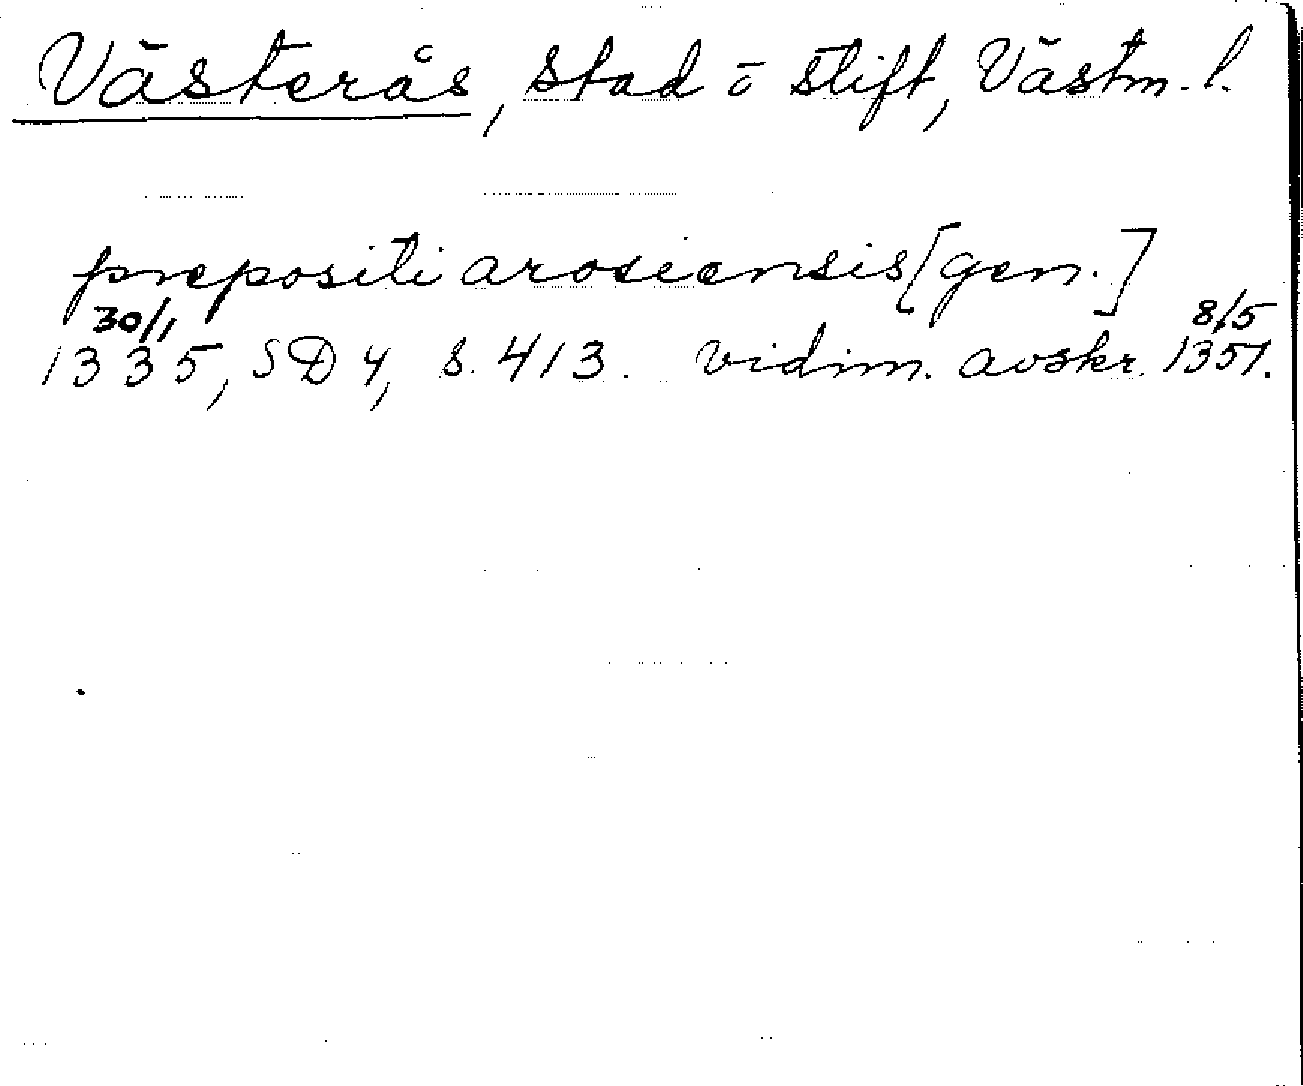 Västerås, stad o stift, Västm. l.
prepositi arosiensis [gen.]
30/1 8/5
1335, SD 4, s. 413. vidim. avskr. 1351.